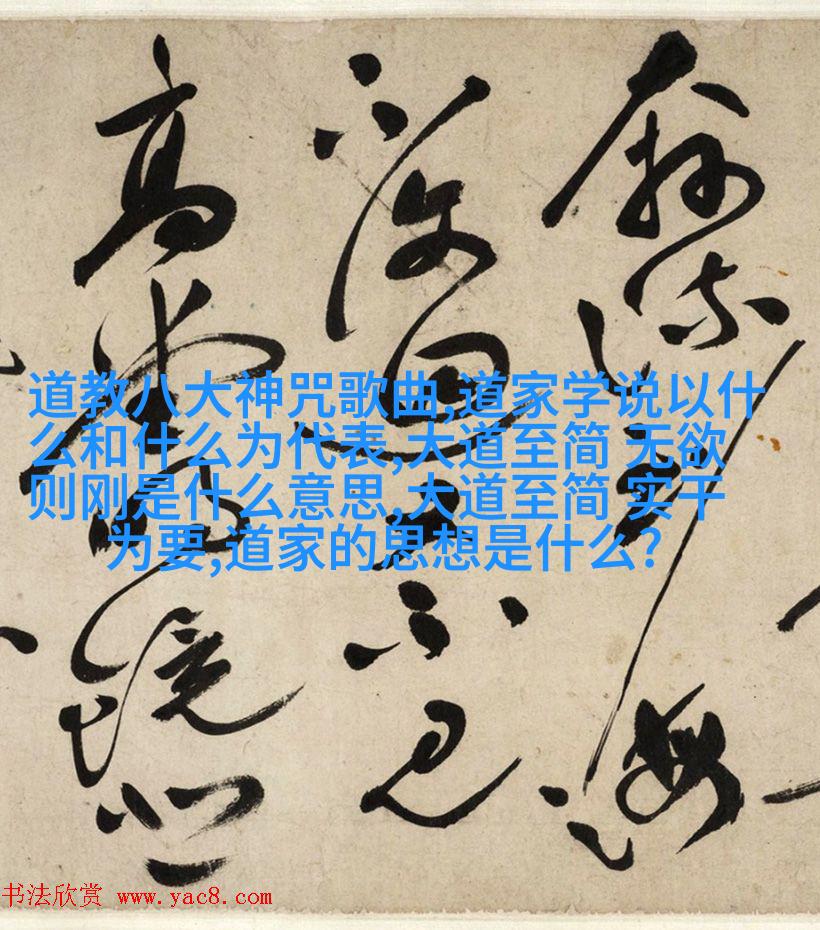 奔流到海
不復回君不見
高堂明鏡悲
道教八大神咒歌曲,道家学说以什
么和什么为代表,大道至简 无欲
则刚是什么意思,大道至简 实干
为要,道家的思想是什么?
书法欣赏 www.yac8.com